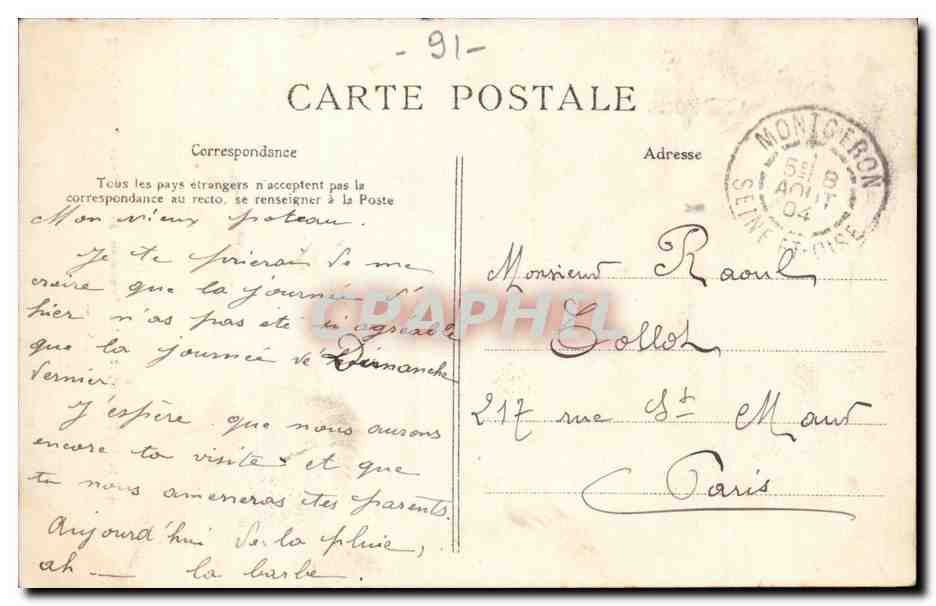 - 91 -
CARTE POSTALE
Correspondance
Tous les pays étrangers n'acceptent pas la
correspondance au recto, se renseigner à la Poste
Adresse
MONTGERON
5E 8
AOUT
04
SEINE-ET-OISE
Mon vieux poteau.
Je te prierai de me
croire que la journée d'
hier n'as pas été si agréable
que la journée de Dimanche
dernier.
J'espère que nous aurons
encore ta visite et que
tu nous ameneras tes parents.
Aujourd'hui de la pluie,
ah — la barbe.
Monsieur Raoul
Collot
217 rue St Maur
Paris
CRAPHIL